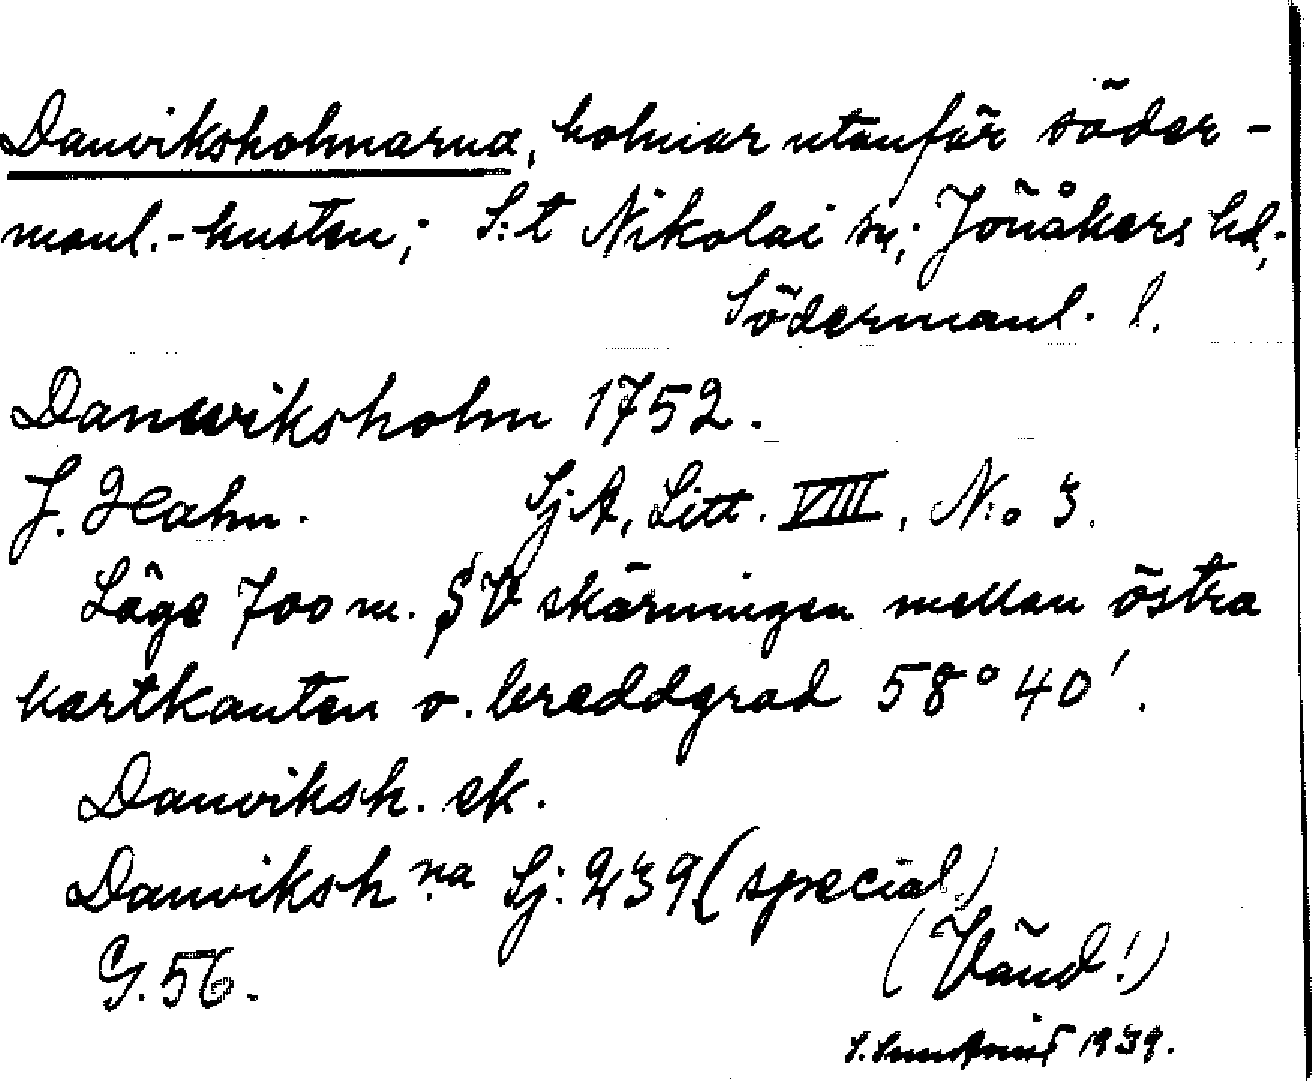 Danviksholmarna, holmar utanför söder-
manl.-kusten; S:t Nikolai sn; Jönåkers hd;
Södermanl. l.
Danwiksholm 1752.
J. Hahn. SjA, Litt. VIII, N:o 3.
Läge 700 m. SV skärningen mellan östra
kartkanten o. breddgrad 58° 40'.
Danviksh. ek.
Danviksh na Sj: 239 (special)
(Vänd!)
G. 56.
1939.